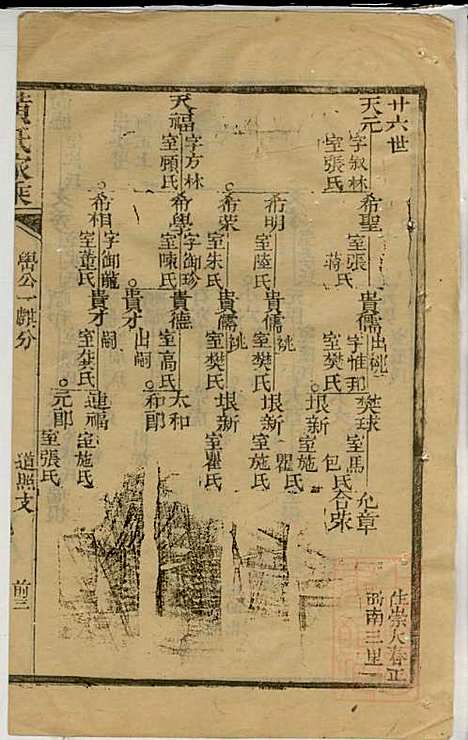 廿六世
天元
字叙林
室張氏
希聖
室張
蔣氏
貴儒
出祧
字惟邦
室樊氏
樊球
室馬
包氏合张
允章
住崇大春正
南三里
希明
室陸氏
貴儒
祧
室樊氏
垠新
室施
瞿氏
希荣
室朱氏
貴儒
祧
室樊氏
垠新
室瞿氏
天福
字方林
室顧氏
希學
字御珍
室陳氏
貴德
室高氏
太和
和郎
貴才
出嗣
希相
字御龍
室董氏
貴才
嗣
室龚氏
連福
室施氏
元郎
室張氏
黃氏家乘
嚳公一麒分
道照支
前三